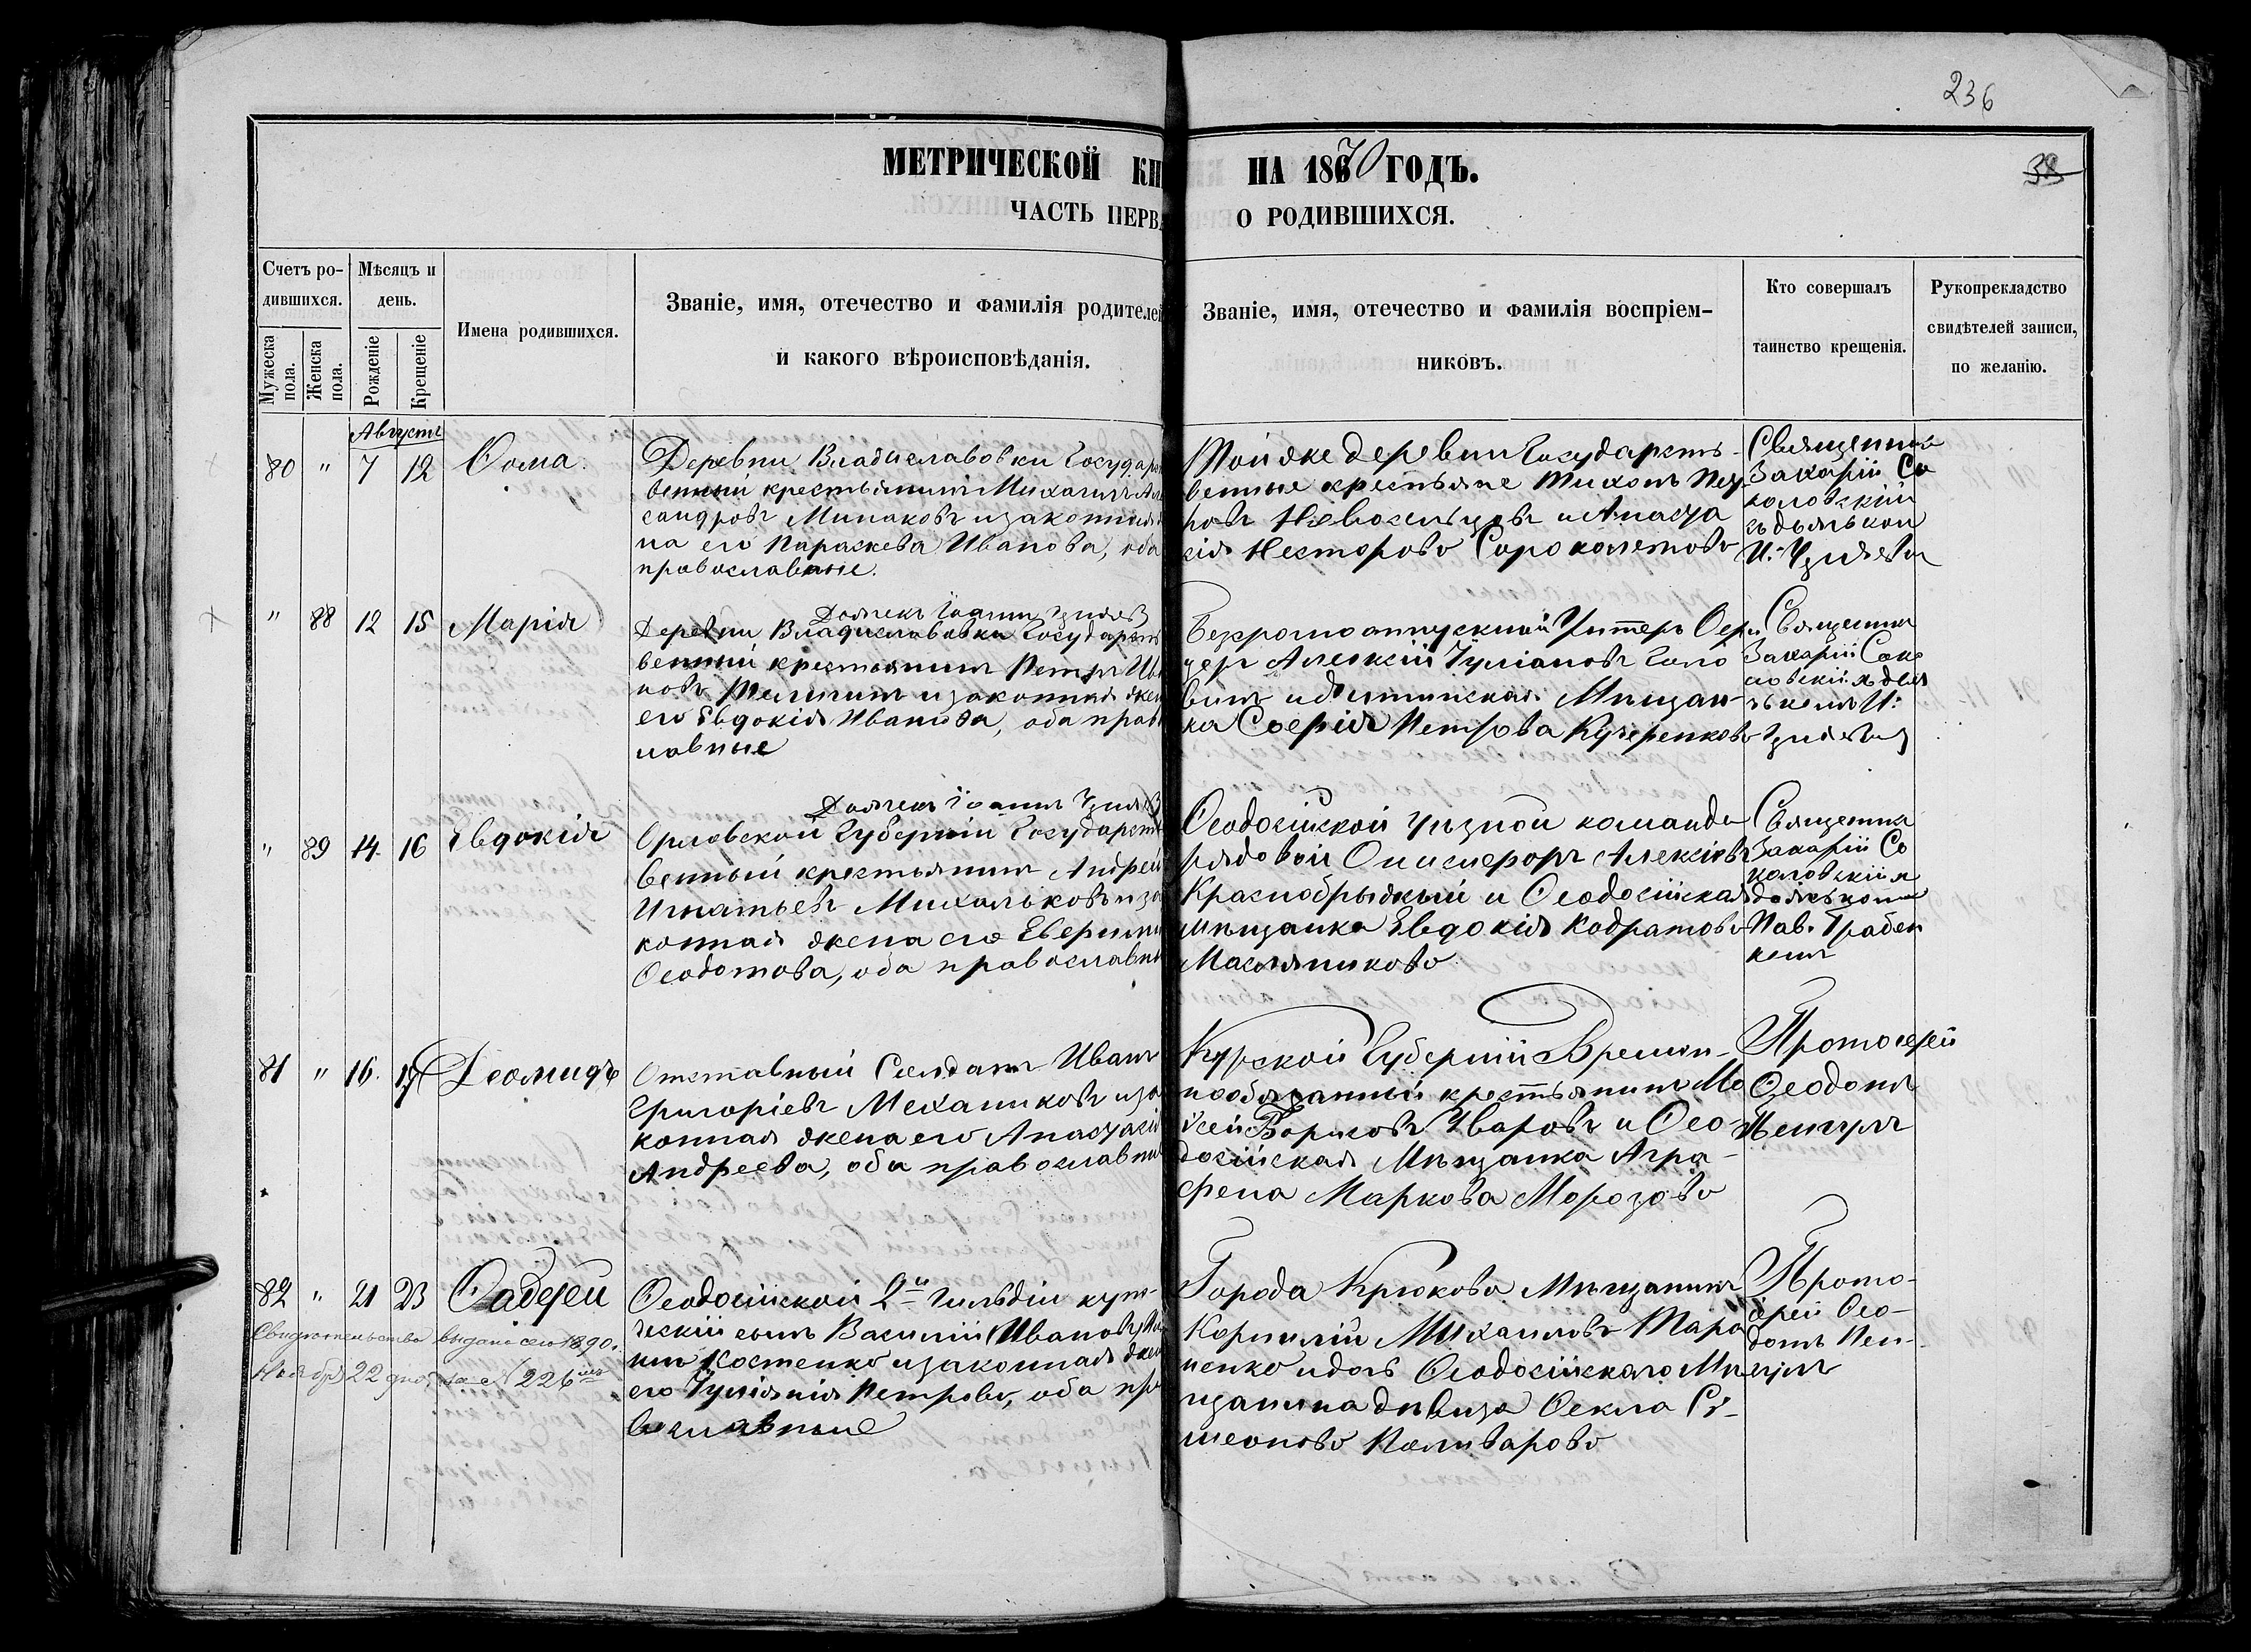 236
МЕТРИЧЕСКОЙ КН НА 1870 ГОДЪ.
38
ЧАСТЬ ПЕРВА О РОДИВШИХСЯ.
Счетъ ро-
дившихся.
Мужеска пола.
Женска пола.
Мѣсяцъ и
день.
Рожденіе
Крещеніе
Имена родившихся.
Званіе, имя, отечество и фамилія родителей
и какого вѣроисповѣданія.
Званіе, имя, отечество и фамилія воспріем-
никовъ.
Кто совершалъ
таинство крещенія.
Рукоприкладство
свидѣтелей записи,
по желанію.
Августъ
80 " 7 12 Ѳома.
Деревни Владиславовки Государст
венный крестьянинъ Михаилъ Але
сандровъ Минаковъ и законная
на его Параскева Иванова, оба
православные.
Той же деревни Государст-
венные крестьяне Тихонъ Пет
ровъ Невосельцовъ и Анаста
сія Несторова Сороколетова
Священникъ
Захарій Со
коловскій
съ дьячкомъ
И.
" 88 12 15 Марія
Дьячекъ Іоаннъ
Деревни Владиславовки Государст
венный крестьянинъ Петръ Ива
новъ и законная жен
его Евдокія Иванова, оба право
лавные
Безсрочноотпускной Унтеръ Офи
церъ Алексій Іуліановъ Голо
винъ и Мѣщан-
ка Софія Петрова Кучеренкова
Священникъ
Захарій Соко
ловскій съ дья
чкомъ И.
" 89 14. 16 Евдокія
Дьячекъ Іоаннъ
Орловской Губерніи Государст
венный крестьянинъ Андрей
Игнатьевъ Михальковъ и за
конная жена его Евфими
Ѳеодотова, оба православны
Ѳеодосійской уѣздной команды
рядовой Онисифоръ Алексіевъ
Краснобрыжый и Ѳеодосійская
мѣщанка Евдокія Кодратова
Масляникова
Священникъ
Захарій Со
коловскій съ
дьячкомъ
Пав. Грабен
комъ
81 " 16. 17 Діомидъ
Отставный Солдатъ Иванъ
Григоріевъ Механиковъ и за
конная жена его Анастасія
Андреева, оба православны
Курской Губерніи Времен-
нообязанный крестьянинъ Мо
ѵсей Борисовъ Уваровъ и Ѳео-
досійская Мѣщанка Агра-
фена Маркова Морозова
Протоіерей
Ѳеодотъ
82 " 21 23 Ѳаддей
Ѳеодосійской 2й Гильдіи купе-
ческій сынъ Василій Ивановъ
Костенко и законная жен
его Іуліанія Петрова, оба пра
вославные
Свидѣтельство выдано сего 1890.
Ноября 22 дня за № 226мъ
Города Крюкова Мѣщанинъ
Корнилій Михаиловъ Тара
ненко и дочь Ѳеодосійскаго Мѣ
щанина дѣвица Ѳекла Сѵ-
меонова Поливарова
Прото-
іерей Ѳео-
дотъ